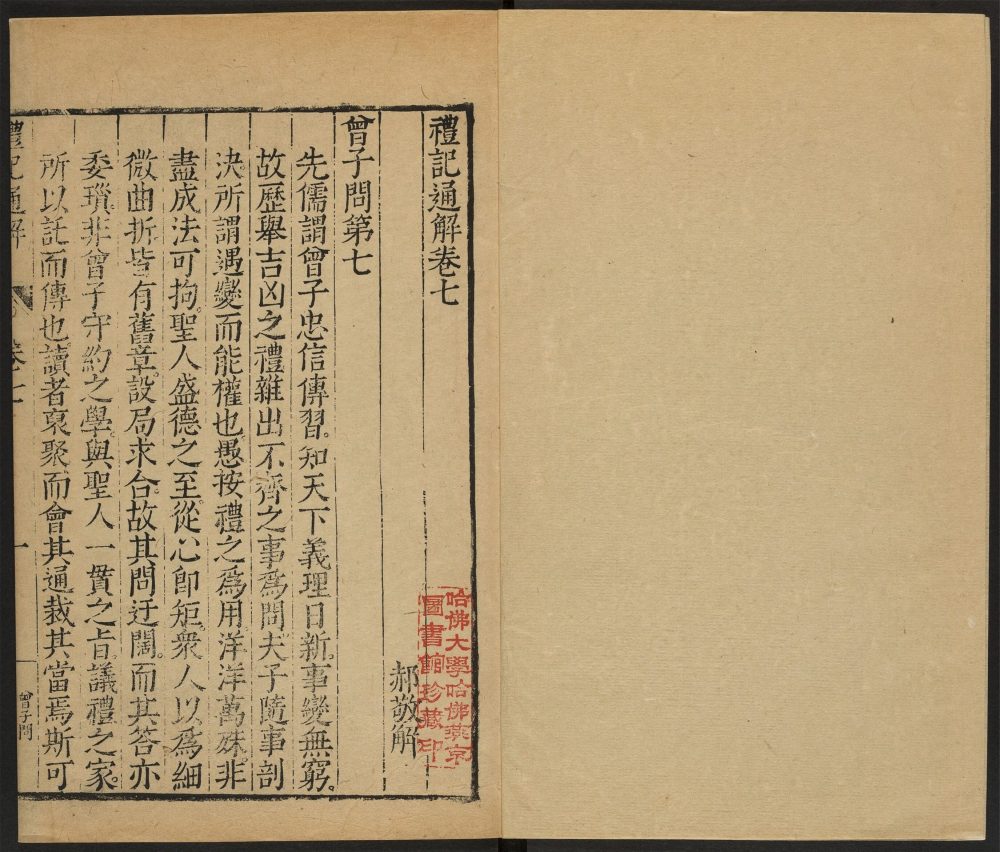 禮記通解卷七
郝敬解
曾子問第七
先儒謂曾子忠信傳習。知天下義理日新。事變無窮。
故歷舉吉凶之禮雜出不齊之事爲問。夫子隨事剖
決。所謂遇變而能權也。愚按禮之爲用洋洋萬殊。非
盡成法可拘。聖人盛德之至。從心卽矩。衆人以爲細
微曲折。皆有舊章。設局求合。故其問迂闊。而其答亦
委瑣。非曾子守約之學。與聖人一貫之旨。議禮之家。
所以託而傳也。讀者裒聚而會其通。裁其當焉。斯可
禮記通解
卷七
曾子問
一
哈佛大學哈佛燕京
圖書館珍藏印